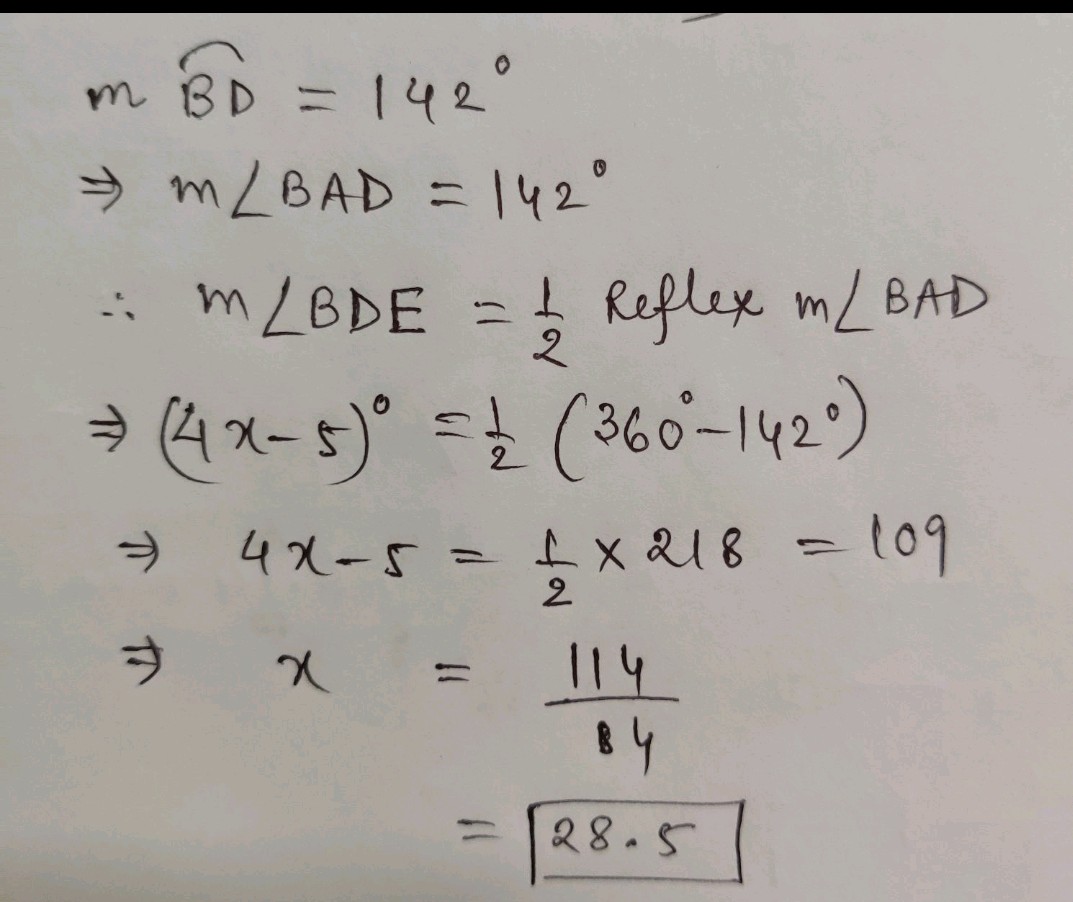 m B͡D = 142°
⇒ m∠BAD = 142°
∴ m∠BDE = 1/2 Reflex m∠BAD
⇒ (4x-5)° = 1/2 (360°-142°)
⇒ 4x-5 = 1/2 × 218 = 109
⇒ x = 114/4
= 28.5